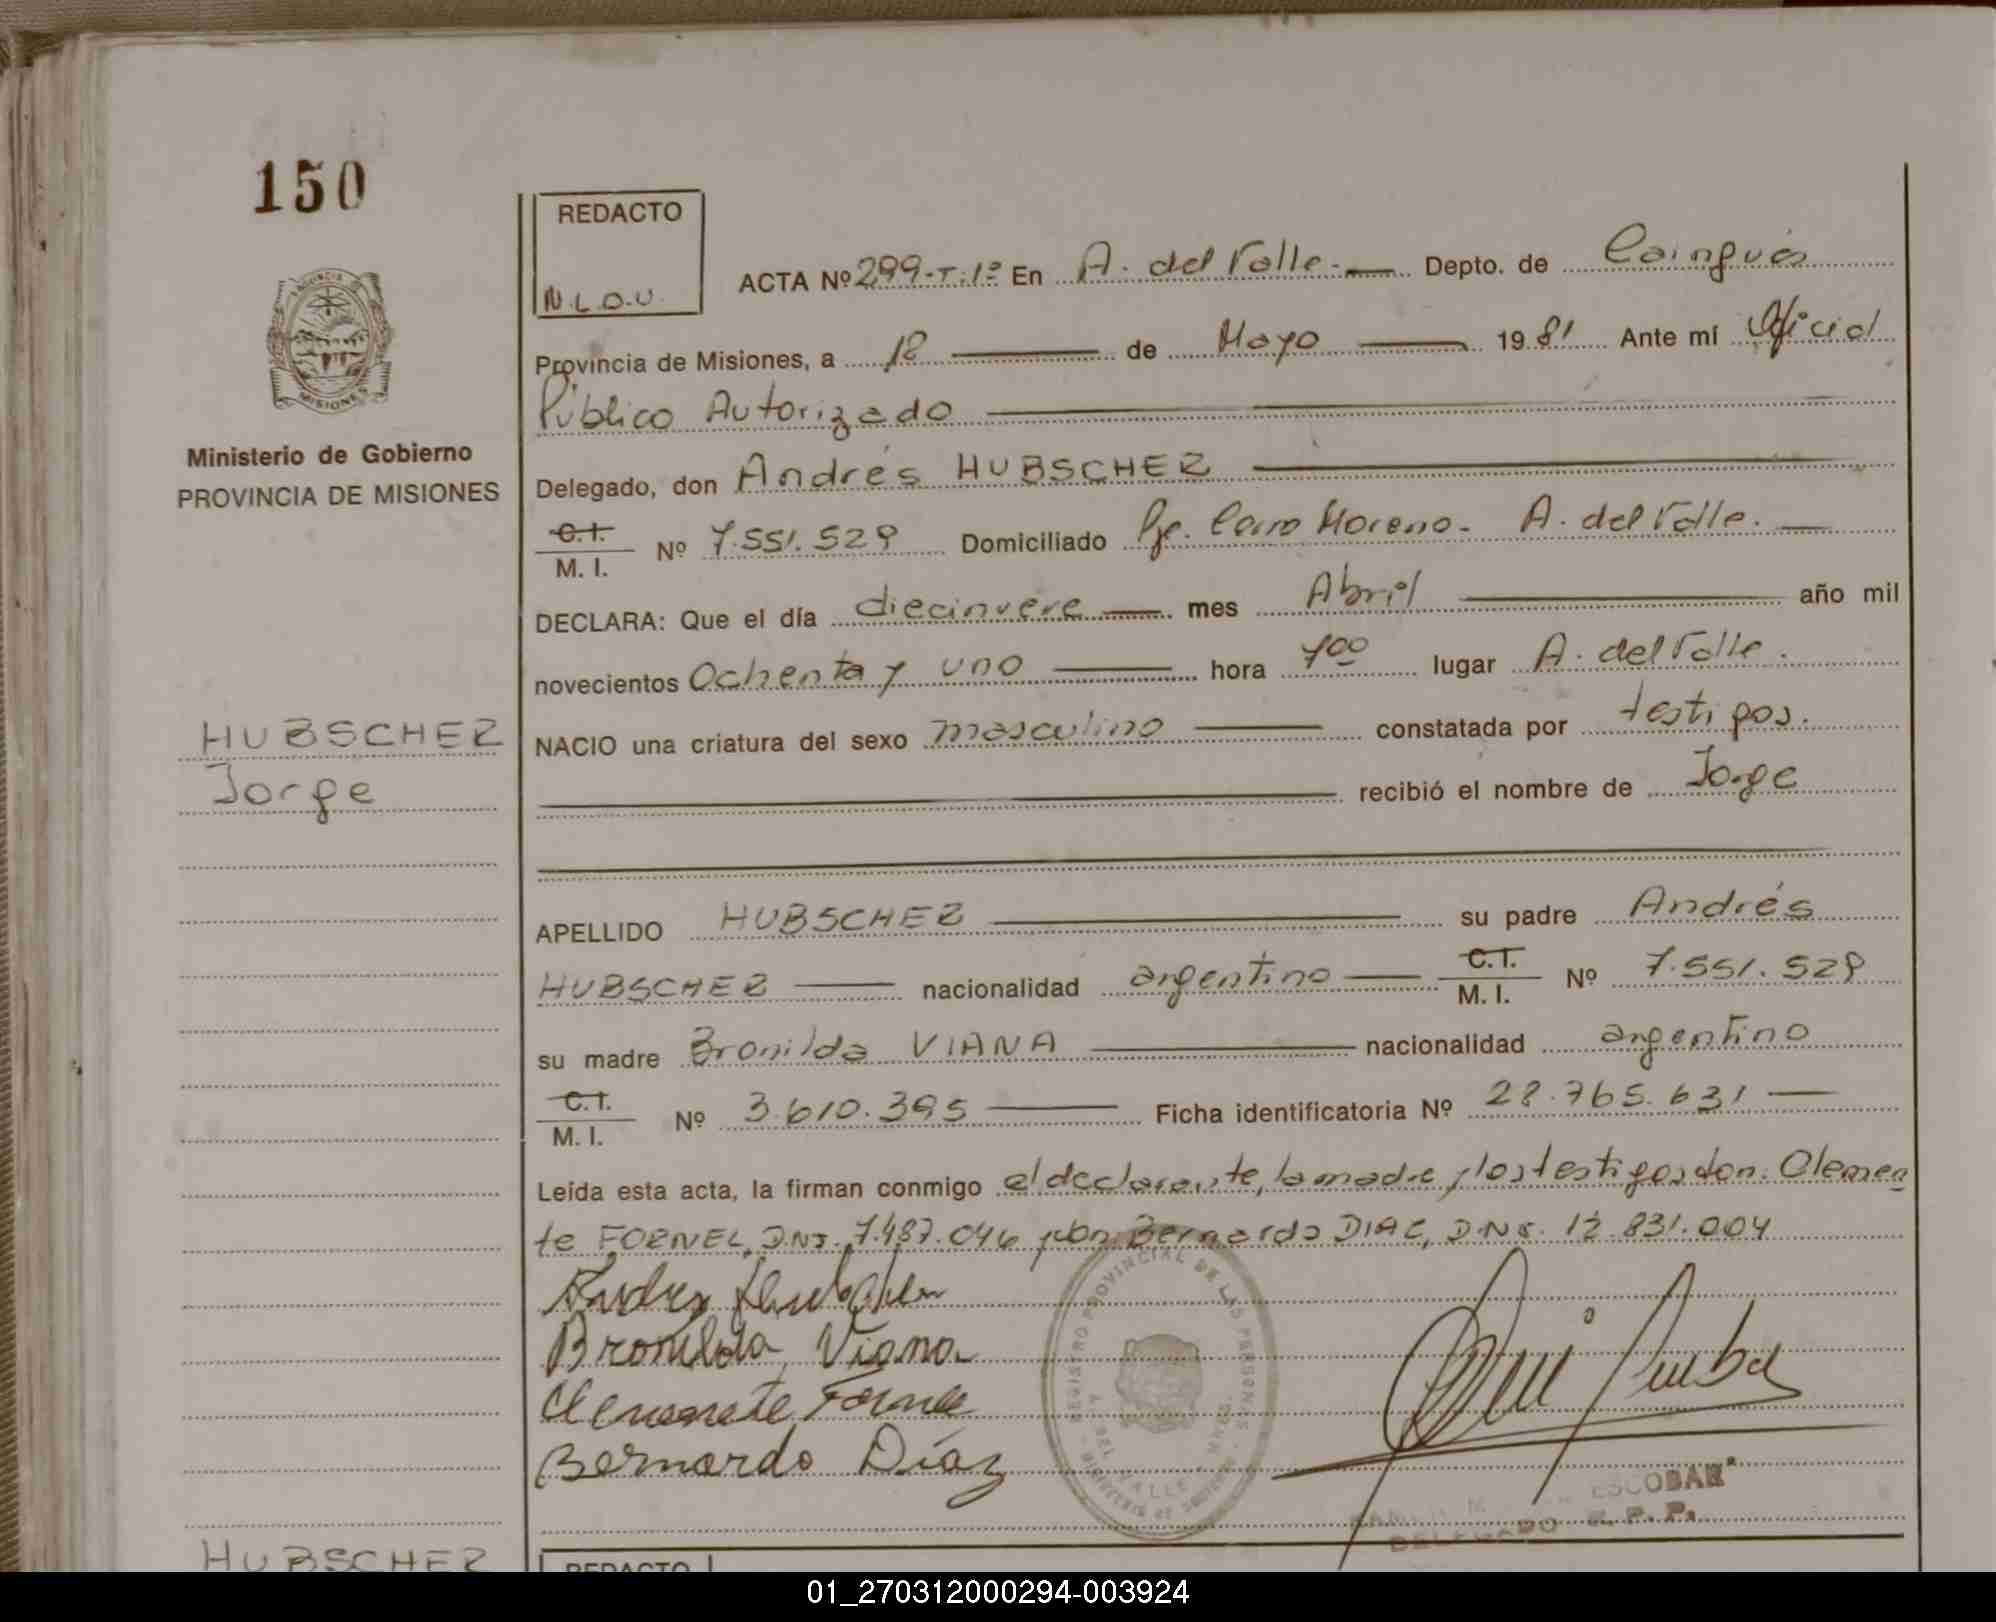 150
REDACTO
N.L.O.U.
ACTA Nº 299-T.1º En A. del Valle. Depto. de Cainguás
Provincia de Misiones, a 12 de Mayo 1981 Ante mí Oficial
Público Autorizado
Ministerio de Gobierno
PROVINCIA DE MISIONES
Delegado, don Andrés HUBSCHER
C.I. M. I. Nº 7.551.529 Domiciliado Pje. Cerro Moreno - A. del Valle.
DECLARA: Que el día diecinueve mes Abril año mil
novecientos Ochenta y uno hora 7ºº lugar A. del Valle.
HUBSCHER
Jorge
NACIO una criatura del sexo masculino constatada por testigos.
recibió el nombre de Jorge
APELLIDO HUBSCHER su padre Andrés
HUBSCHER nacionalidad argentino C.I. M. I. Nº 7.551.529
su madre Bronilda VIANA nacionalidad argentino
C.I. M. I. Nº 3.610.395 Ficha identificatoria Nº 28.765.631
Leída esta acta, la firman conmigo el declarante, la madre y los testigos don: Clemen
te FORNEL, D.N.I. 7.487.046 y don Bernardo DIAC, D.N.I. 12.831.004
Bronilda Viana
Bernardo Díaz
REGISTRO PROVINCIAL DE LAS PERSONAS
ESCOBAR
DELEGADO R. P. P.
HUBSCHER
REDACTO
01_270312000294-003924